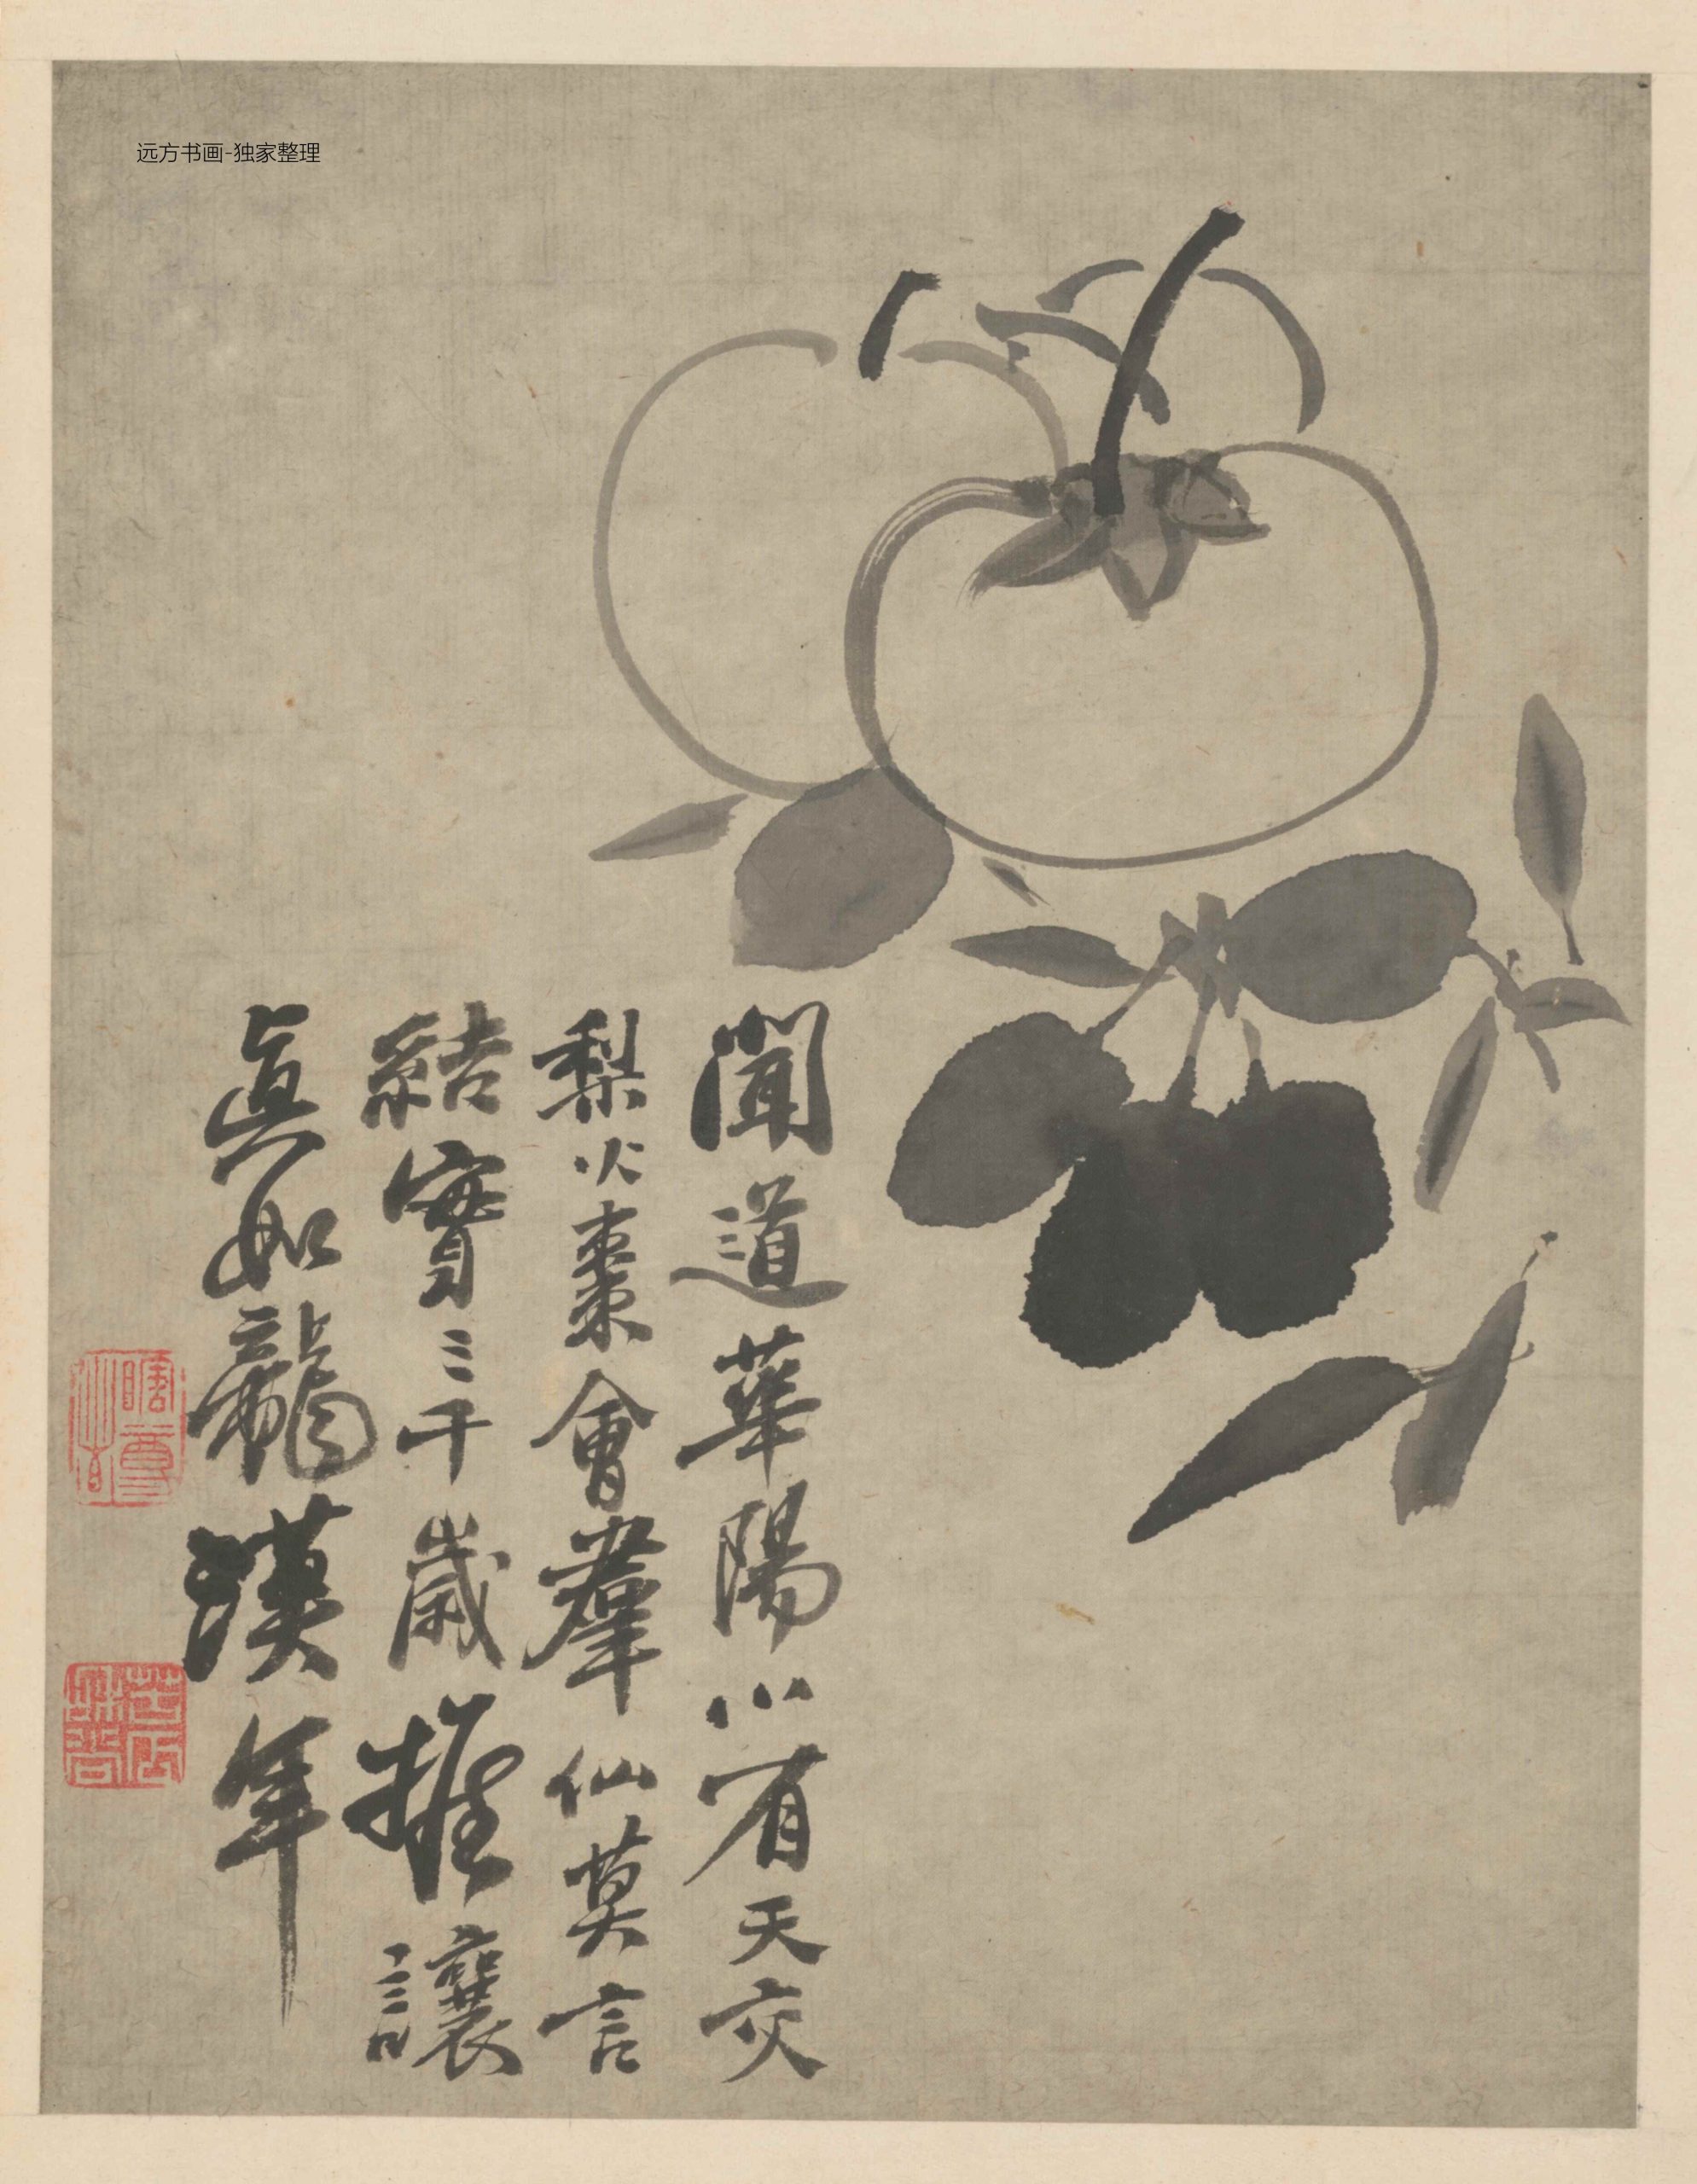 远方书画-独家整理
聞道華陽小有天交
梨火棗會羣仙莫言
結實三千歲推讓
眞如龍漢年
瞎尊者